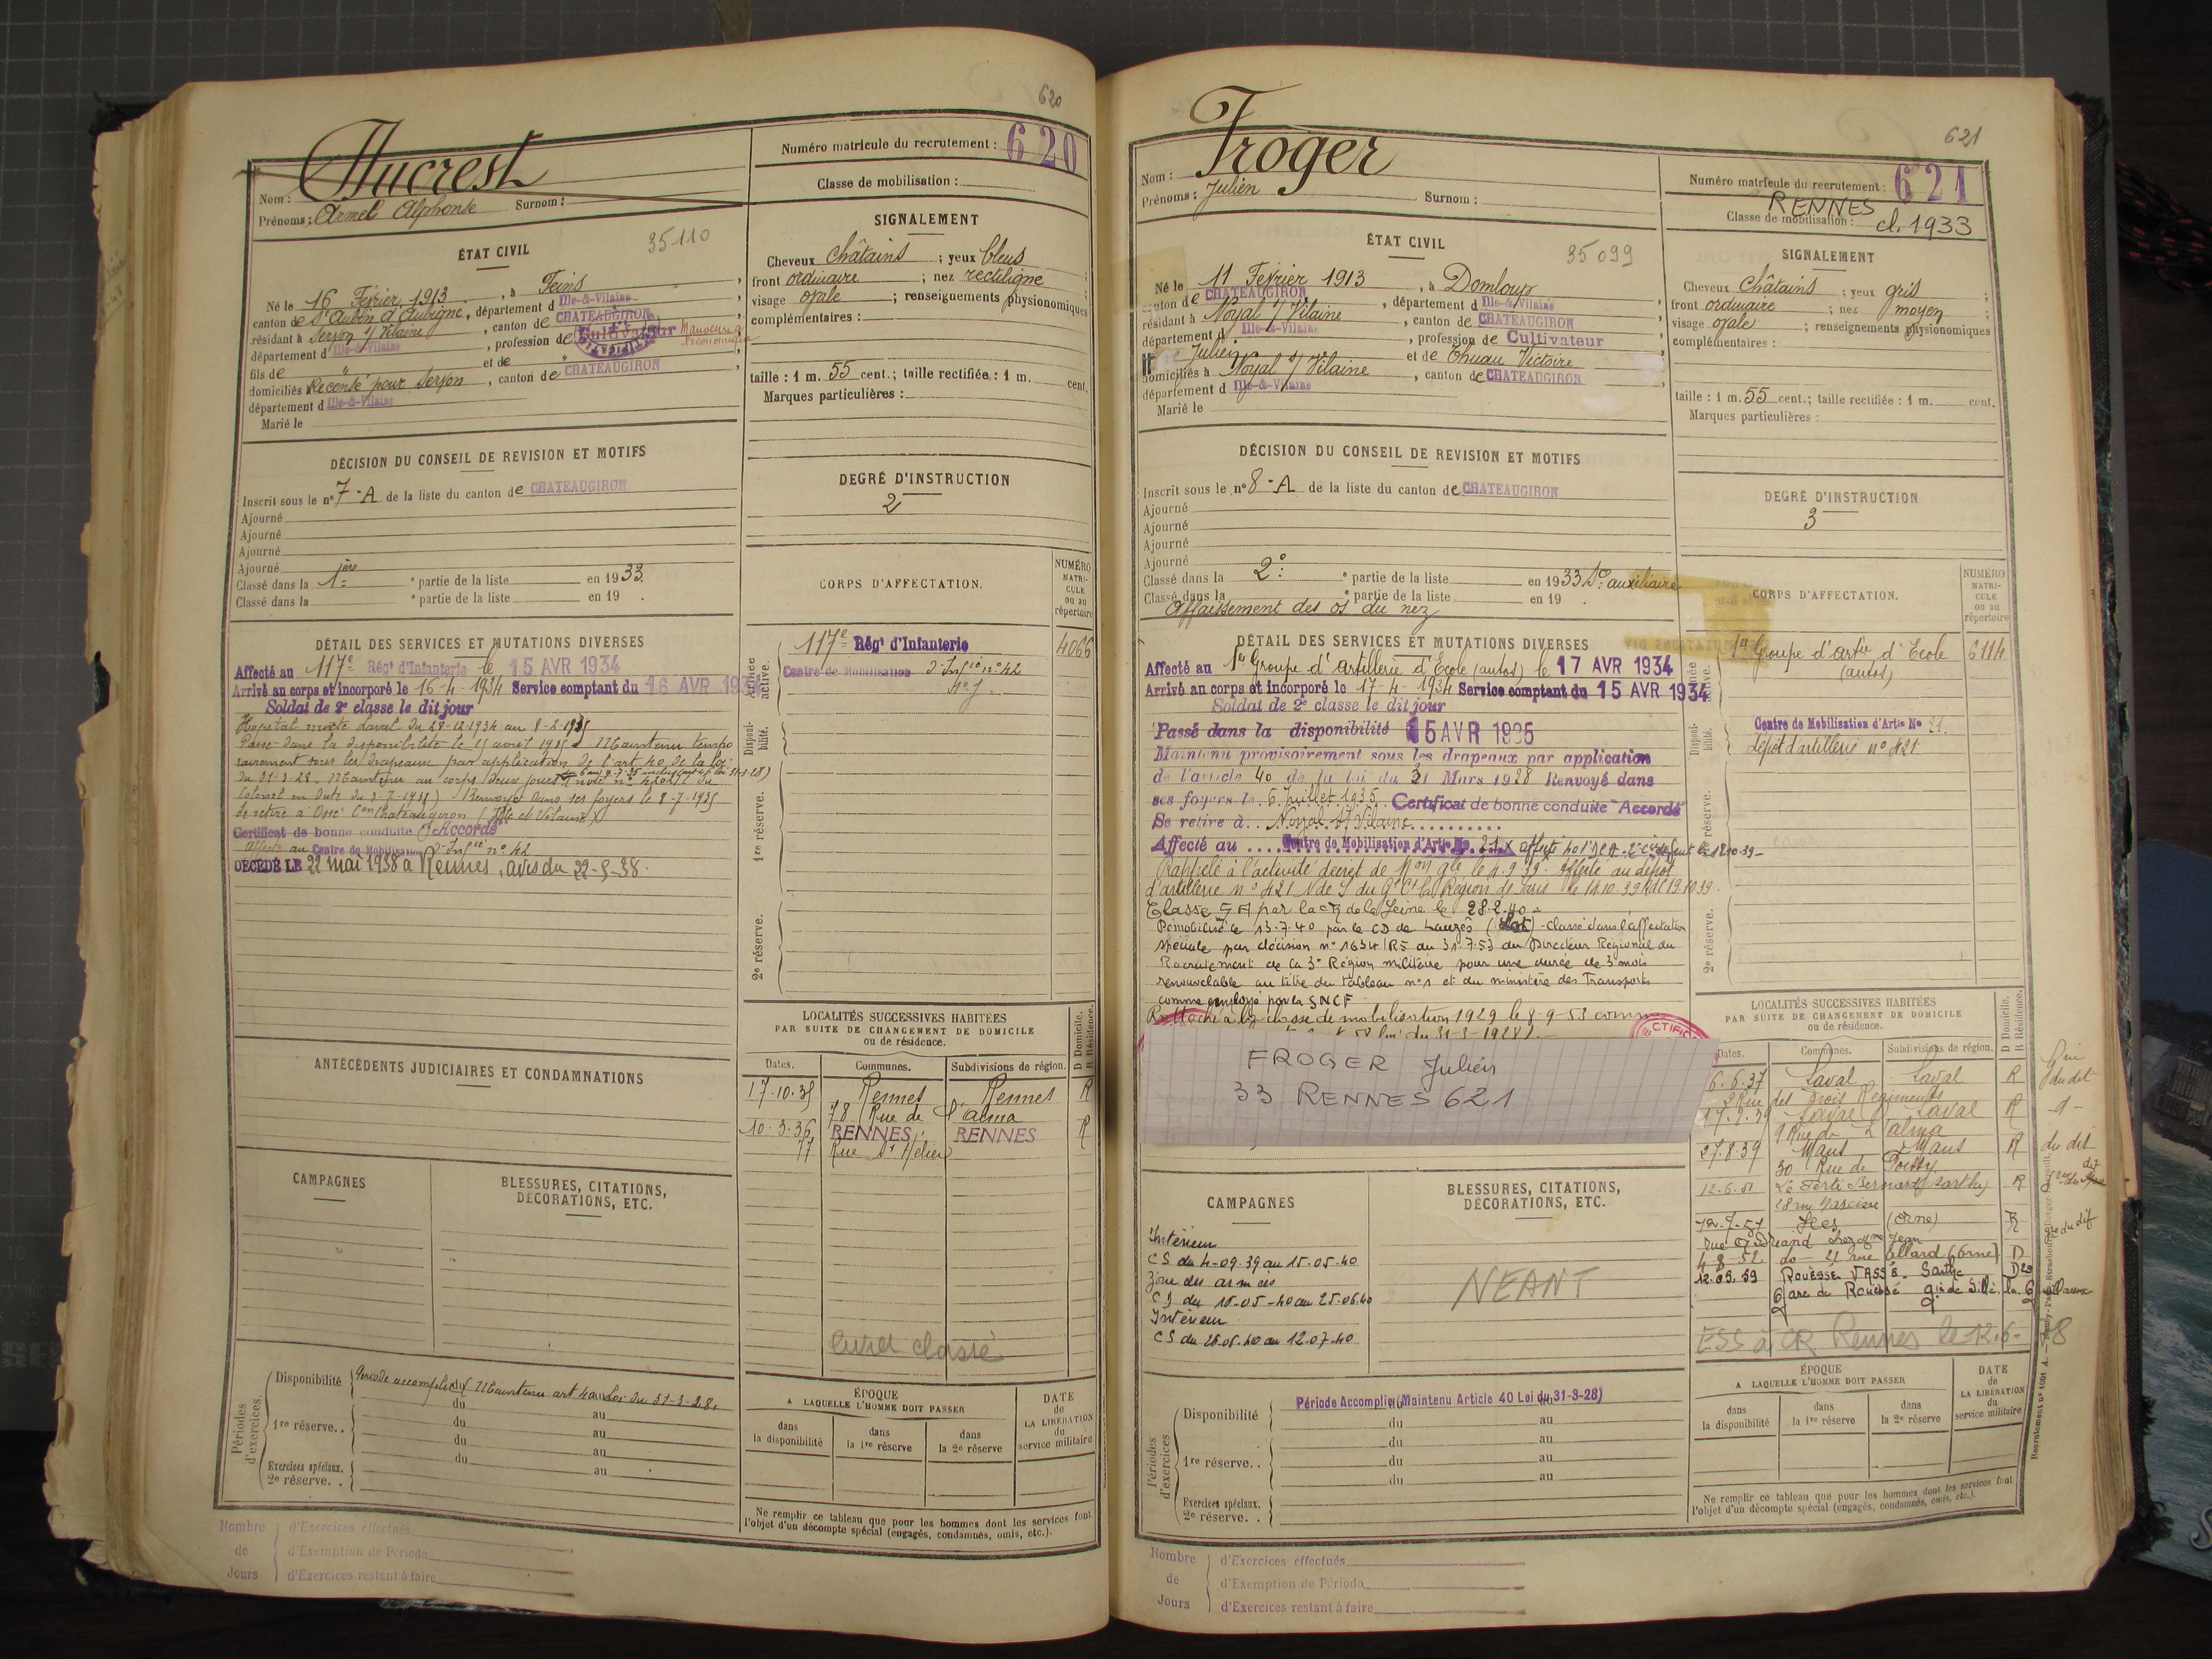 620
Numéro matricule du recrutement : 620
Nom : Hucrest
Classe de mobilisation :
Prénoms : Armel Alphonse Surnom :
ÉTAT CIVIL
35110
Né le 16 Février 1913, à Feins
canton de St Aubin d'Aubigné, département d Ille-&-Vilaine
résidant à Servon s/ Vilaine, canton de CHATEAUGIRON
département d Ille-&-Vilaine, profession de Cultivateur
fils de " et de "
domiciliés Recensé pour Servon, canton de CHATEAUGIRON
département d Ille-&-Vilaine
Marié le
SIGNALEMENT
Cheveux châtains ; yeux bleus
front ordinaire ; nez rectiligne
visage ovale ; renseignements physionomiques
complémentaires :
taille : 1 m. 55 cent.; taille rectifiée : 1 m. cent.
Marques particulières :
DÉCISION DU CONSEIL DE REVISION ET MOTIFS
Inscrit sous le n° 7-A de la liste du canton de CHATEAUGIRON
Ajourné
Ajourné
Ajourné
Ajourné
Classé dans la 1ère ° partie de la liste en 1933.
Classé dans la ° partie de la liste en 19 .
DEGRÉ D'INSTRUCTION
2
CORPS D'AFFECTATION.
NUMÉRO MATRICULE ou au répertoire
Armée active.
117e Régt d'Infanterie 4066
Centre de Mobilisation d'Infie n° 42
Disponibilité.
1re réserve.
2e réserve.
DÉTAIL DES SERVICES ET MUTATIONS DIVERSES
Affecté au 117e Régt d'Infanterie le 15 AVR 1934
Arrivé au corps et incorporé le 16-4-1934 Service comptant du 16 AVR 193
Soldat de 2e classe le dit jour
Hopital mixte Laval du 28-12-1934 au 8-2-1935
Passé dans la disponibilité le 15 avril 1935 Maintenu tempo
rairement sous les drapeaux par application de l'art 40 de la loi
du 31-3-28. Maintenu au corps deux jours
Colonel en date du 3-7-1935) Renvoyé dans ses foyers le 8-7-1935
Se retire à Ossé Con Chateaugiron (Ille et Vilaine)
Certificat de bonne conduite "Accordé"
Affecté au Centre de Mobilisation d'Infie n° 42
DÉCÉDÉ LE 22 mai 1938 à Rennes, avis du 22-5-38.
ANTÉCÉDENTS JUDICIAIRES ET CONDAMNATIONS
LOCALITÉS SUCCESSIVES HABITÉES
PAR SUITE DE CHANGEMENT DE DOMICILE
ou de résidence.
D Domicile. R Résidence.
Dates. Communes. Subdivisions de région.
17-10-35 Rennes Rennes R
78 Rue de l'alma
10-3-36 RENNES RENNES R
77 Rue St Hélier
CAMPAGNES
BLESSURES, CITATIONS,
DÉCORATIONS, ETC.
livret classé
Périodes d'exercices.
Disponibilité Période accomplie (Maintenu art 40 Loi du 31-3-28.
du au
1re réserve.. du au
du au
du au
Exercices spéciaux.
2e réserve. .
ÉPOQUE
A LAQUELLE L'HOMME DOIT PASSER
dans la disponibilité
dans la 1re réserve
dans la 2e réserve
DATE de LA LIBÉRATION du service militaire
Ne remplir ce tableau que pour les hommes dont les services font
l'objet d'un décompte spécial (engagés, condamnés, omis, etc.).
Nombre de Jours
d'Exercices effectués
d'Exemption de Période
d'Exercices restant à faire
621
Nom : Froger
Numéro matricule du recrutement : 621
RENNES
Prénoms : Julien Surnom :
Classe de mobilisation : cl. 1933
ÉTAT CIVIL
35099
Né le 11 Février 1913, à Domloup
canton de CHATEAUGIRON, département d Ille-&-Vilaine
résidant à Noyal s/ Vilaine, canton de CHATEAUGIRON
département d Ille-&-Vilaine, profession de Cultivateur
Julien et de Thuau Victoire
domiciliés à Noyal s/ Vilaine, canton de CHATEAUGIRON
département d Ille-&-Vilaine
Marié le
SIGNALEMENT
Cheveux châtains ; yeux gris
front ordinaire ; nez moyen
visage ovale ; renseignements physionomiques
complémentaires :
taille : 1 m. 55 cent.; taille rectifiée : 1 m. cent.
Marques particulières :
DÉCISION DU CONSEIL DE REVISION ET MOTIFS
Inscrit sous le n° 8-A de la liste du canton de CHATEAUGIRON
Ajourné
Ajourné
Ajourné
Ajourné
Classé dans la 2e ° partie de la liste en 1933 Sce auxiliaire
Classé dans la ° partie de la liste en 19 .
Affaissement des os du nez
DEGRÉ D'INSTRUCTION
3
CORPS D'AFFECTATION.
NUMÉRO MATRICULE ou au répertoire
1er Groupe d'artie d'Ecole (autos) 6114
Disponibilité.
Centre de Mobilisation d'Artie No 21.
dépôt d'artillerie n° 421
1re réserve.
2e réserve.
DÉTAIL DES SERVICES ET MUTATIONS DIVERSES
Affecté au 1er Groupe d'Artillerie d'Ecole (autos) le 17 AVR 1934
Arrivé au corps et incorporé le 17-4-1934 Service comptant du 15 AVR 1934
Soldat de 2e classe le dit jour
Passé dans la disponibilité 15 AVR 1935
Maintenu provisoirement sous les drapeaux par application
de l'article 40 de la loi du 31 Mars 1928 Renvoyé dans
ses foyers le 6 Juillet 1935 Certificat de bonne conduite "Accordé"
Se retire à Noyal s/ Vilaine
Affecté au Centre de Mobilisation d'Artie No 21
Rappelé à l'activité décret de Mon gle le 4.9.39. Affecté au dépôt
d'artillerie n° 421
Classé 5 A par la CR de la Seine le 28.2.40
Démobilisé le 13-7-40 par le CD de Lauzès (Lot) - classé dans l'affectation
spéciale par décision n° 1634/RS du 31-7-53 du Directeur Régional du
Recrutement de la 3e Région militaire pour une durée de 3 mois
renouvelable au titre du tableau n°1 et du ministère des Transports
comme employé par la SNCF
Rattaché à la classe de mobilisation 1929 le 8-9-53 comme
loi du 31-3-1928)
FROGER Julien
33 RENNES 621
LOCALITÉS SUCCESSIVES HABITÉES
PAR SUITE DE CHANGEMENT DE DOMICILE
ou de résidence.
D Domicile. R Résidence.
Dates. Communes. Subdivisions de région.
6.6.37 Laval Laval R
2 Rue des Trois Régiments
Laval Laval R
9 Rue de l'alma
27.8.39 Mans Mans R
30 Rue de Poissy
12-6-51 La Ferté Bernard (Sarthe) R
(Orne) R
4-8-52 do 21 rue (Orne) D
12.05.59 Rouessé VASSÉ. Sarthe D
Gare de Rouessé
ESS à CR Rennes le 12.6-
CAMPAGNES
Intérieur
CS du 4-09-39 au 15-05-40
Zone des armées
CS du 16-05-40 au 25-06-40
Intérieur
CS du 26-06-40 au 12-07-40
BLESSURES, CITATIONS,
DÉCORATIONS, ETC.
NEANT
Périodes d'exercices.
Disponibilité Période Accomplie (Maintenu Article 40 Loi du 31-3-28)
du au
1re réserve. . du au
du au
du au
Exercices spéciaux.
2e réserve. .
ÉPOQUE
A LAQUELLE L'HOMME DOIT PASSER
dans la disponibilité
dans la 1re réserve
dans la 2e réserve
DATE de LA LIBÉRATION du service militaire
Ne remplir ce tableau que pour les hommes dont les services font
l'objet d'un décompte spécial (engagés, condamnés, omis, etc.).
Nombre de Jours
d'Exercices effectués
d'Exemption de Période
d'Exercices restant à faire